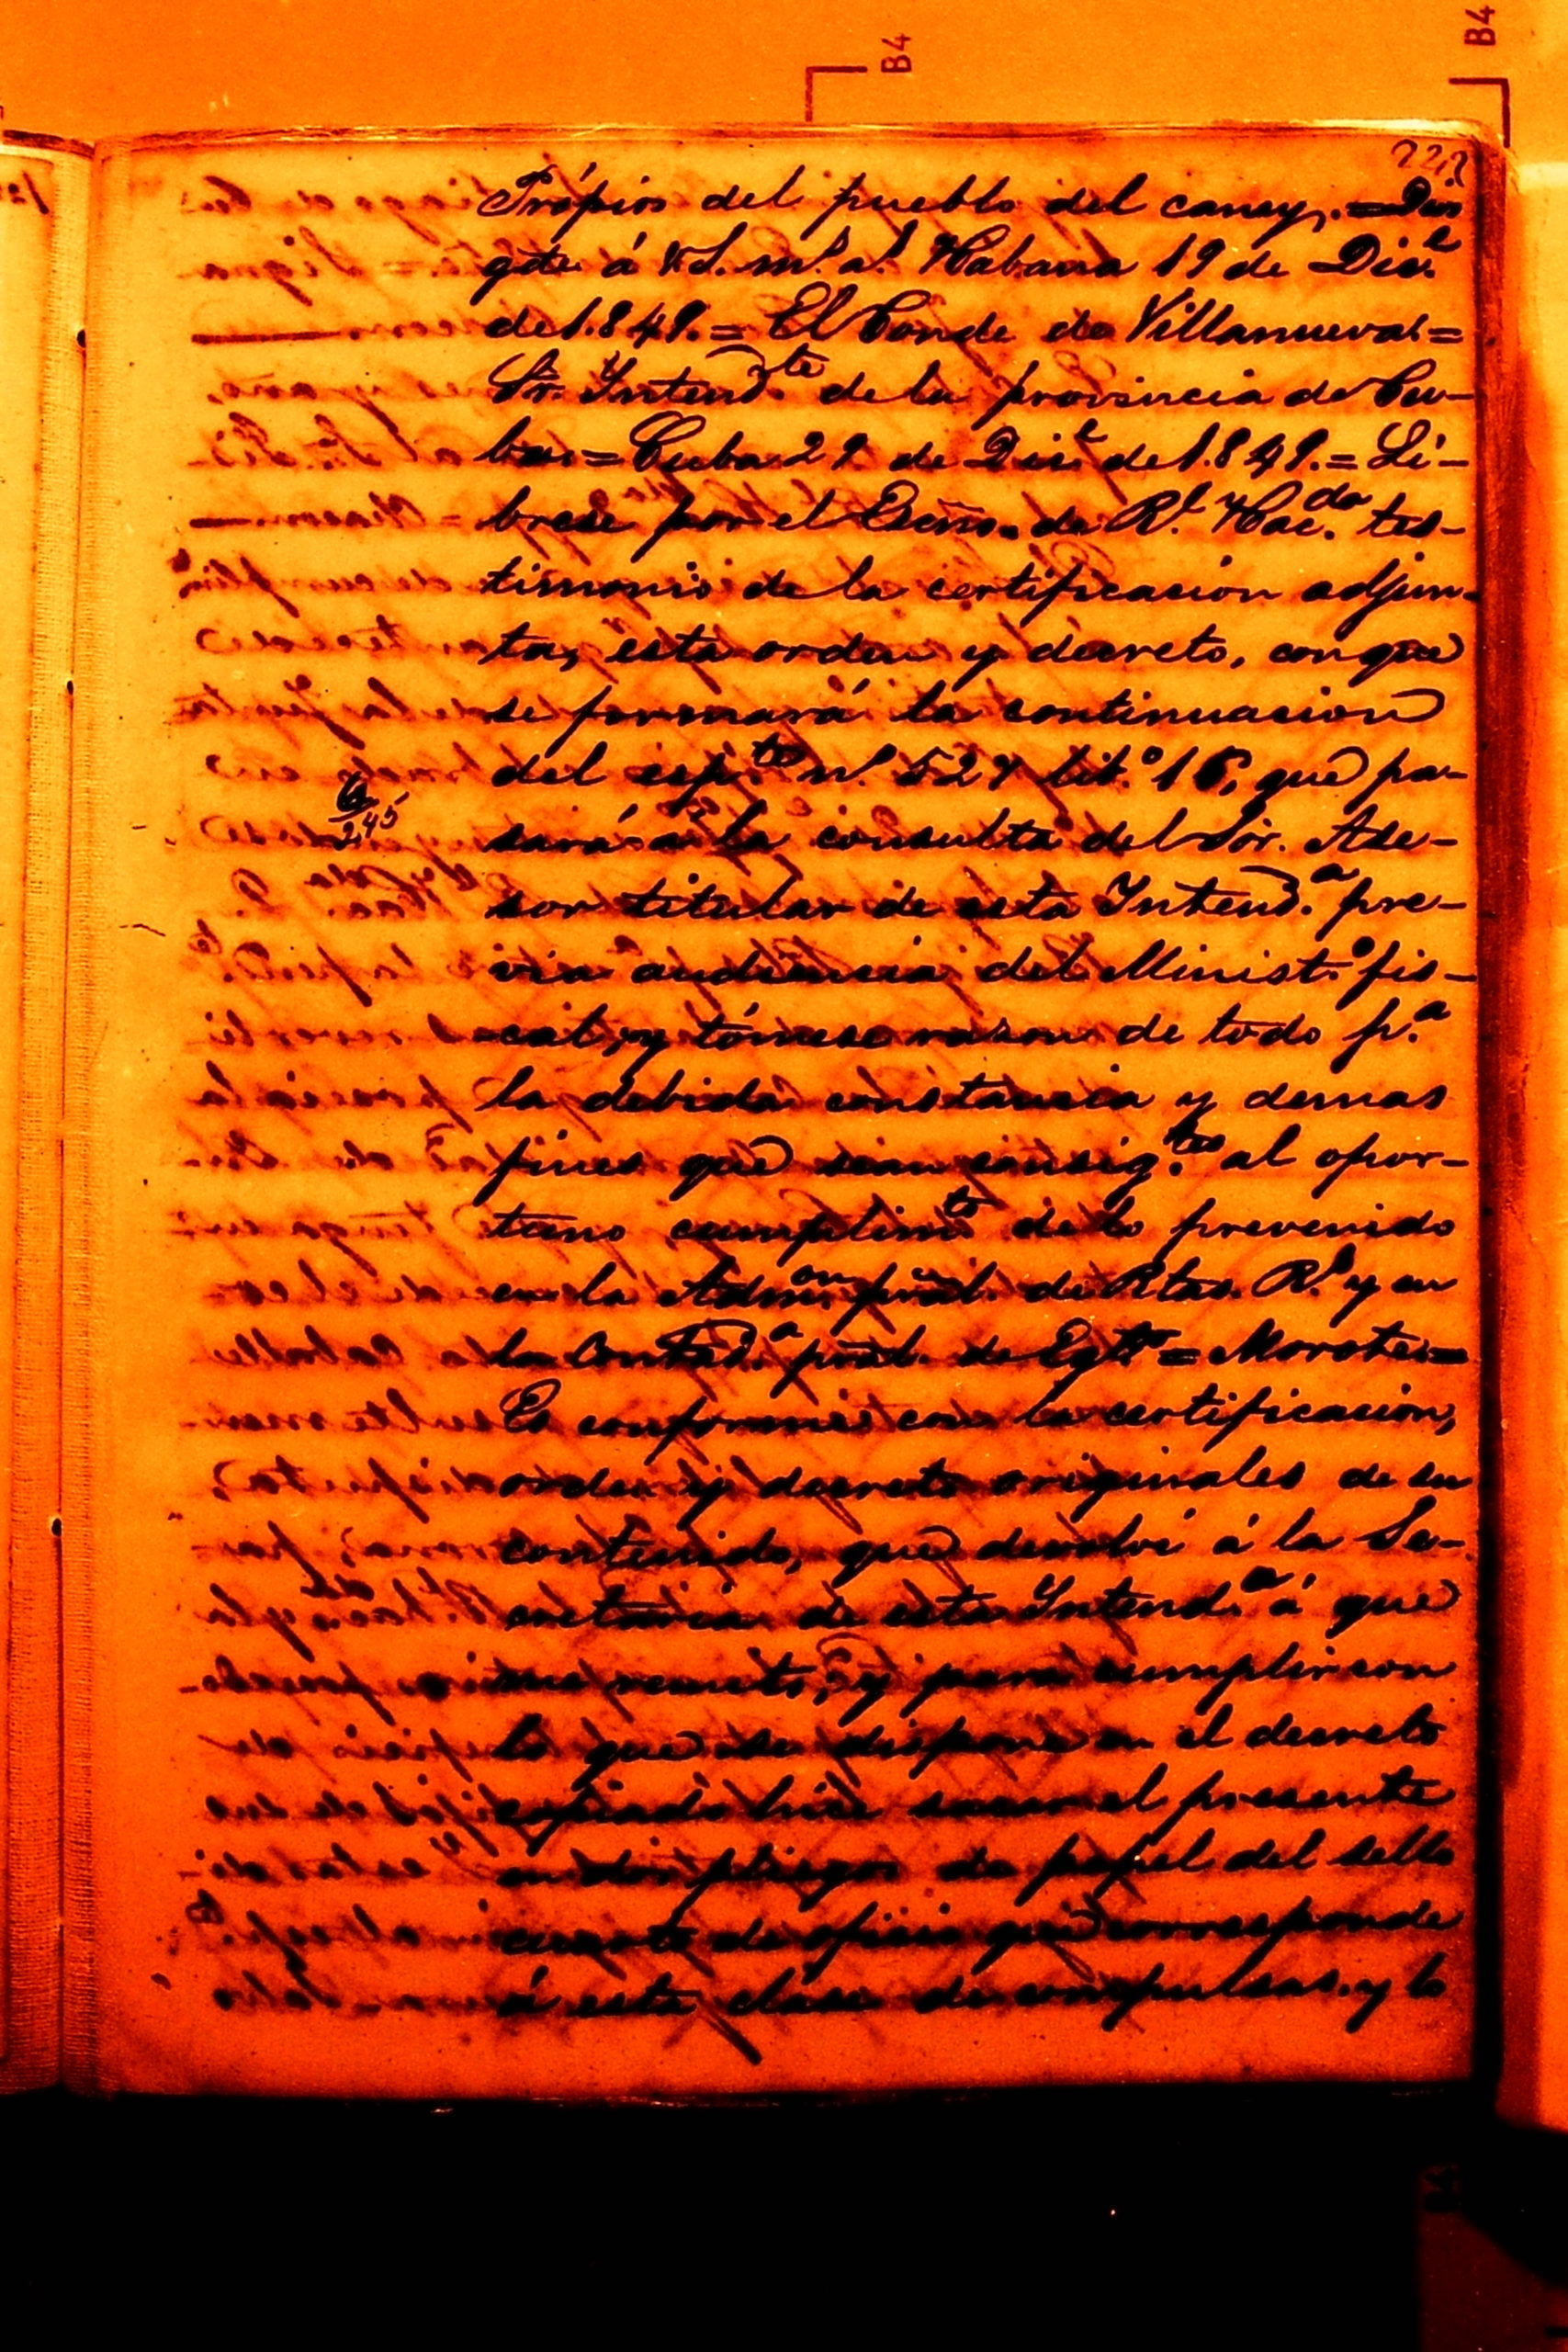 B4
B4
Própios del pueblo del caney. = Dios
gde á V.S. ms. as. Habana 19 de Dice.
de 1.849. = El Conde de Villanueva. =
Sr. Intendte. de la provincia de Cu-
ba. = Cuba 29 de Dice. de 1.849. = Li-
brese por el Escno. de Rl. Hacda. tes-
timonio de la certificacion adjun-
ta, esta orden y decreto, con que
se formará la continuacion
del espte. no. 527 lib.o 16, que pa-
6/245
sará á la consulta del Sor. Ase-
sor titular de esta Intenda. pre-
via audiencia del Ministo. fis-
cal, y tómese razon de todo pa.
la debida constancia y demas
fines que sean consigtes. al opor-
tuno cumplimto. de lo prevenido
en la Admon. pral. de Rtas. Rs. y en
la Contada. pral. de Egto = Morote. =
Es conforme con la certificacion,
orden y decreto originales de su
contenido, que devolví á la Se-
cretaria de esta Intenda. á que
me remito, y para cumplir con
lo que se dispone en el decreto
copiado hice sacar el presente
en dos pliegos de papel del sello
cuarto de oficio que corresponde
á esta clase de compulsas. y lo